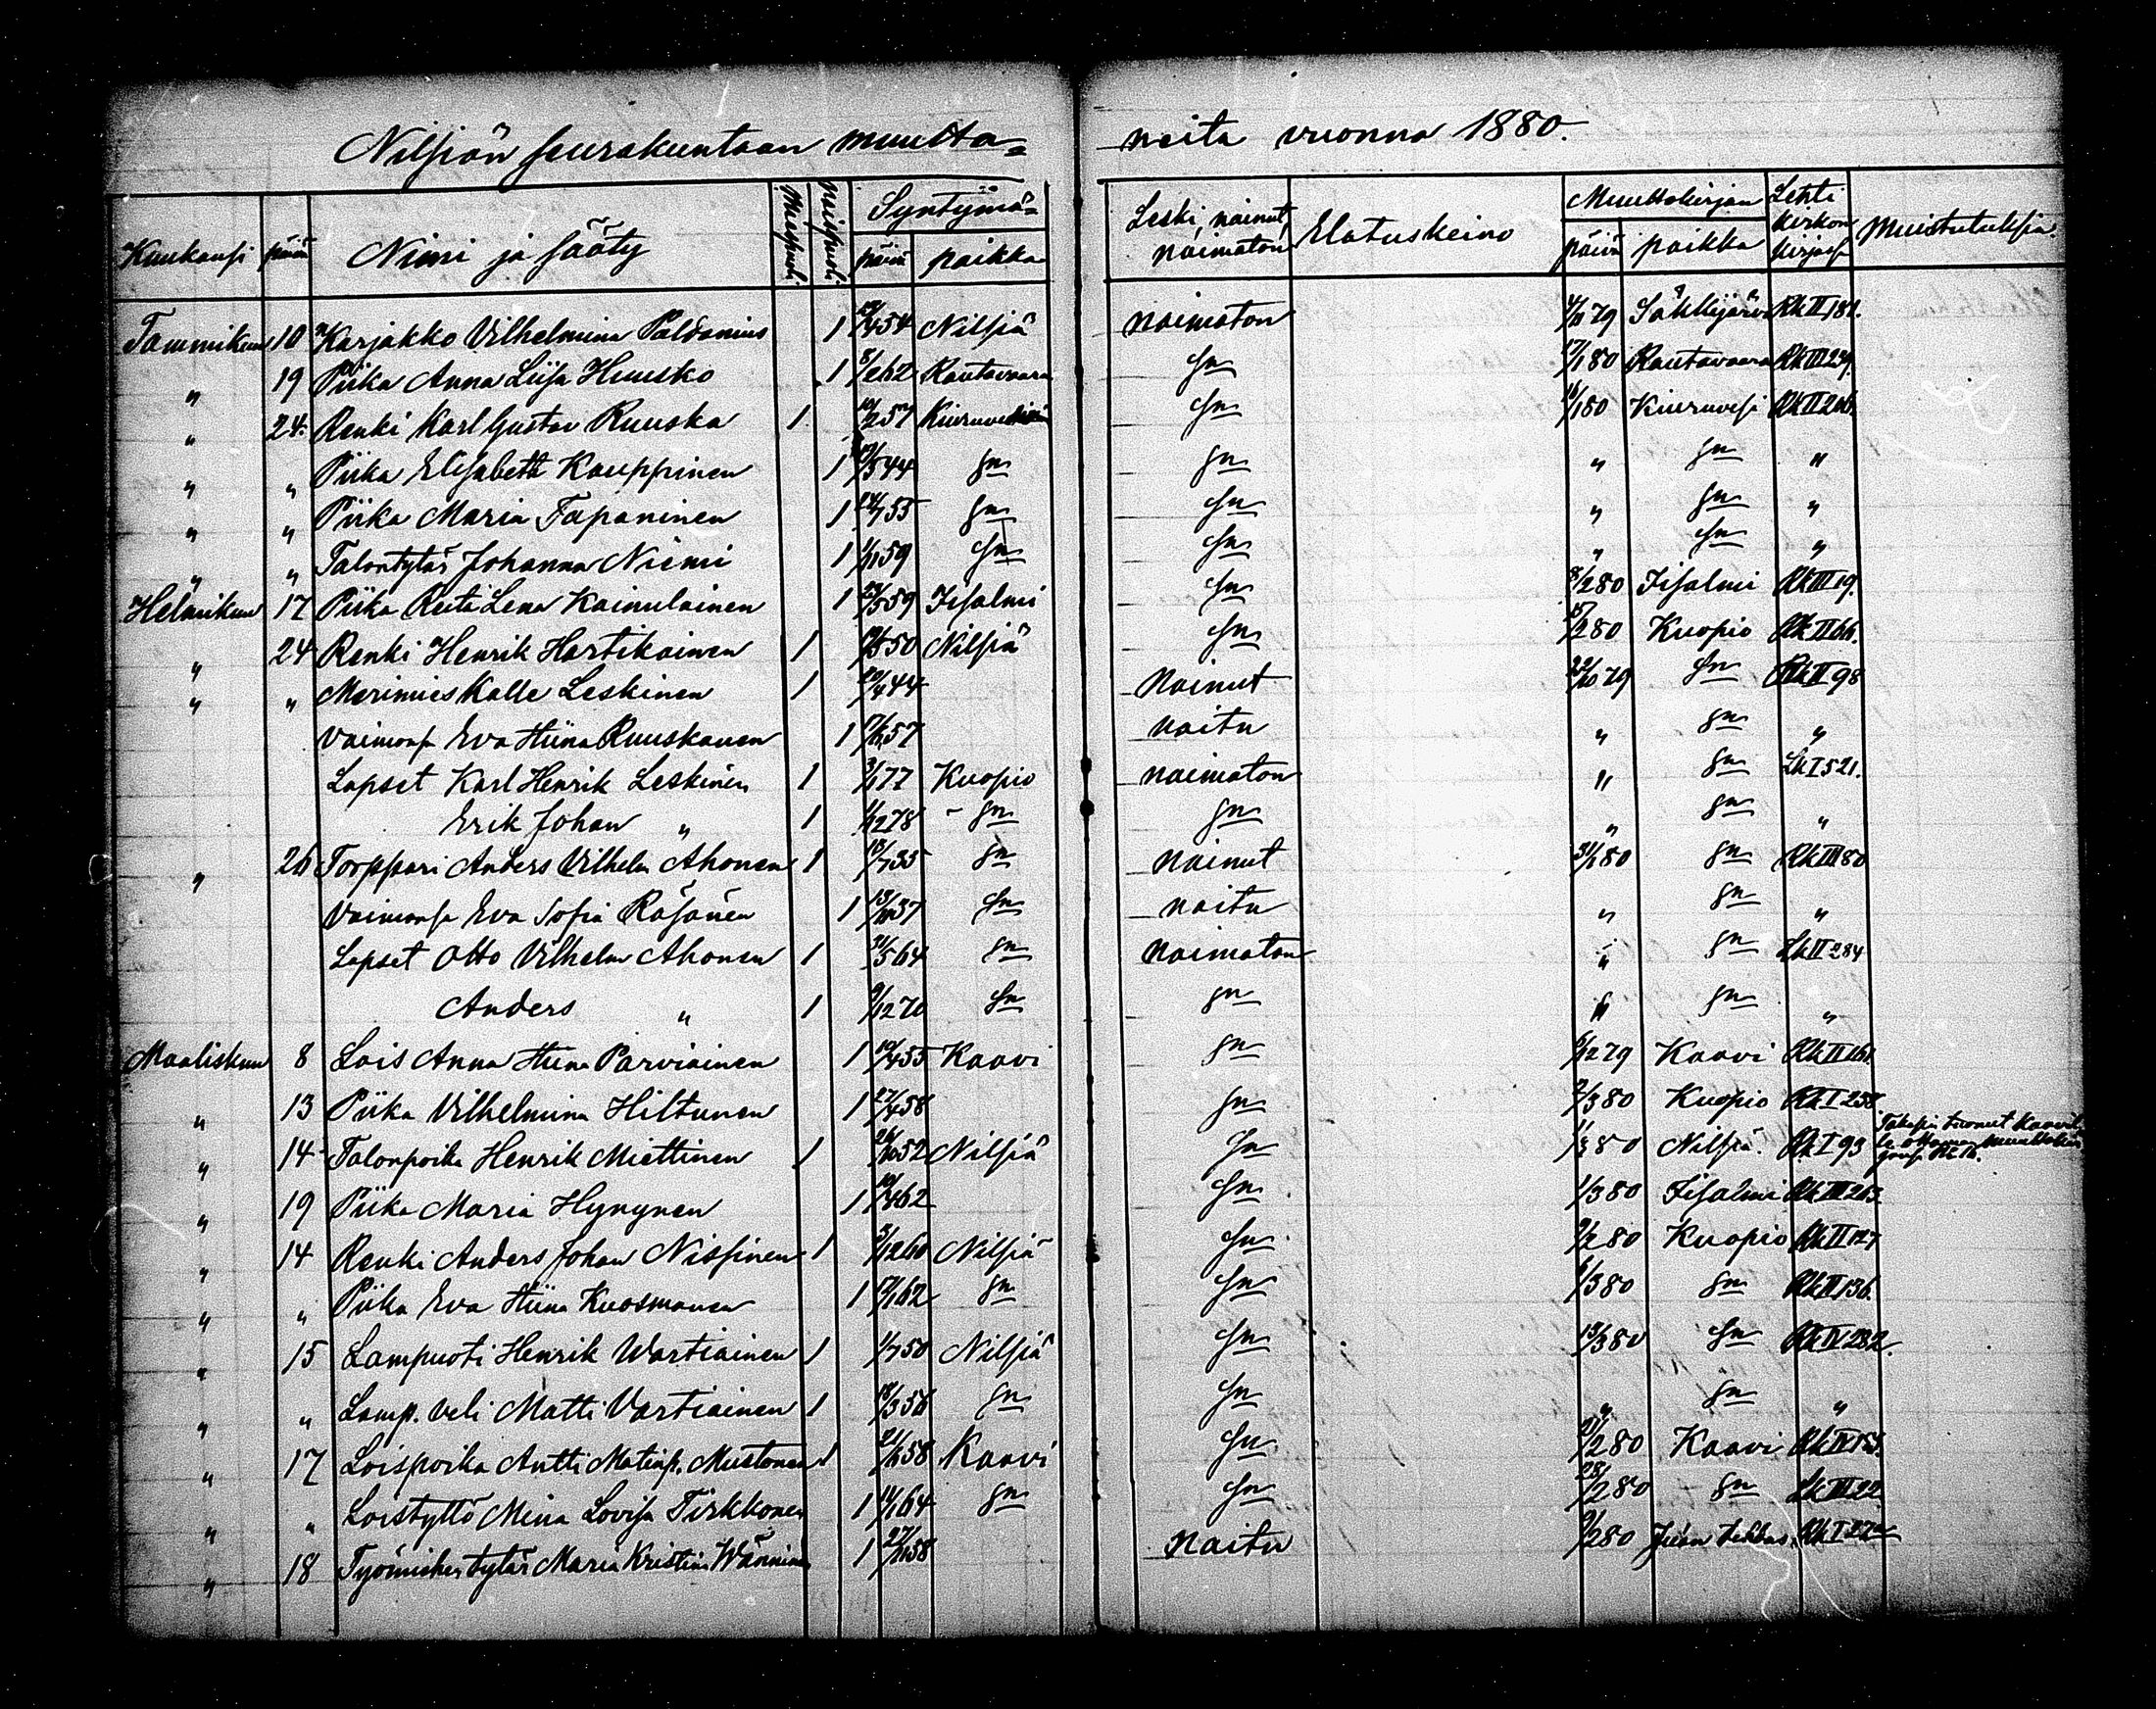 Nilsiän seurakuntaan muutta= neita vuonna 1880.
Kuukausi päivä Nimi ja sääty Miespuoli. Naispuoli. Syntymä= päivä paikka Leski, nainut, naimaton Elatuskeino Muuttokirjan päivä paikka Lehti kirkon kirjassa Muistutuksia.
Tammikuu 10 Karjakko Vilhelmina Paldanius 1 454 Nilsiä naimaton 79 Säkkijärvi Rk II 181.
" 19 Piika Anna Liisa Huusko 1 8/262 Rautavaara Sn 17/180 Rautavaara Rk III 229.
" 24. Renki Karl Gustav Ruuska 1. 10/257 Kiuruvesi Sn 16/180 Kiuruvesi Rk II 206.
" " Piika Elisabeth Kauppinen 1 544 Sn Sn " Sn "
" " Piika Maria Tapaninen 1 24/755 Sn Sn " Sn "
" " Talontytär Johanna Niemi 1 59 Sn Sn " Sn "
Helmikuu 17 Piika Reeta Lena Kainulainen 1 559 Iisalmi Sn 8/280 Iisalmi Rk III 19.
" 24 Renki Henrik Hartikainen 1 50 Nilsiä Sn 15/280 Kuopio Rk II 66.
" " Merimies Kalle Leskinen 1 20/444 Nainut 22/1079 Sn Rk II 98
Vaimonsa Eva Stiina Ruuskanen 1 57 naitu " Sn "
Lapset Karl Henrik Leskinen 1 3/177 Kuopio naimaton " Sn Lk I 521.
Erik Johan " 1 1/1278 - Sn Sn " Sn "
" 26 Torppari Anders Vilhelm Ahonen 1 18/735 Sn nainut 31/180 Sn Rk III 80
Vaimonsa Eva Sofia Räsänen 1 37 Sn naitu " Sn "
Lapset Otto Vilhelm Ahonen 1 564 Sn naimaton " Sn Lk II 284
Anders " 1 9/1270 Sn Sn " Sn "
Maaliskuu 8 Lois Anna Stiina Parviainen 1 55 Kaavi Sn 6/1279 Kaavi Rk II 161.
" 13 Piika Vilhelmina Hiltunen 1 27/458 Sn 2/380 Kuopio Rk I 258
" 14 Talonpoika Henrik Miettinen 1 26/1052 Nilsiä Sn 1/380 Nilsiä. Rk I 93 Takasin tuonut Kaavil-
le ottaman muuttokir-
jansa
" 19 Piika Maria Hynynen 1 62 Sn 1/380 Iisalmi Rk III 263.
" 14 Renki Anders Johan Nissinen 1 1260 Nilsiä Sn 9/280 Kuopio Rk II 127
" " Piika Eva Stiina Kuosmanen 1 162 Sn Sn 6/380 Sn Rk II 136.
" 15 Lampuoti Henrik Wartiainen 1 1/750 Nilsiä Sn 13/380 Sn Rk IV 232.
" " Lamp. veli Matti Vartiainen 1 18/356 Sn Sn " Sn "
" 17 Loispoika Antti Matinp. Mustonen 1 21/658 Kaavi Sn 21/280 Kaavi Rk IV
" " Loistyttö Mina Lovisa Tirkkonen 1 14/164 Sn Sn 28/280 Sn Lk III 22
" 18 Työmiehen tytär Maria Kristina Wänninen 1 27/1158 Naitu 9/280 Rk I 27